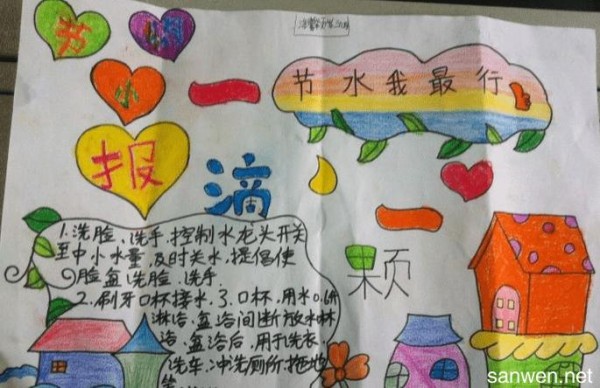 节
小
报
一
滴
节水我最行
一
颗
1.洗脸、洗手,控制水龙头开关
至中小水量,及时关水,提倡使
脸盆洗脸、洗手.
2.刷牙口杯接水,3.口杯,用水
淋浴、盆浴间断放水淋
浴、盆浴后,用于洗衣、
洗车、冲洗厕所,拖地
等
sanwen.net